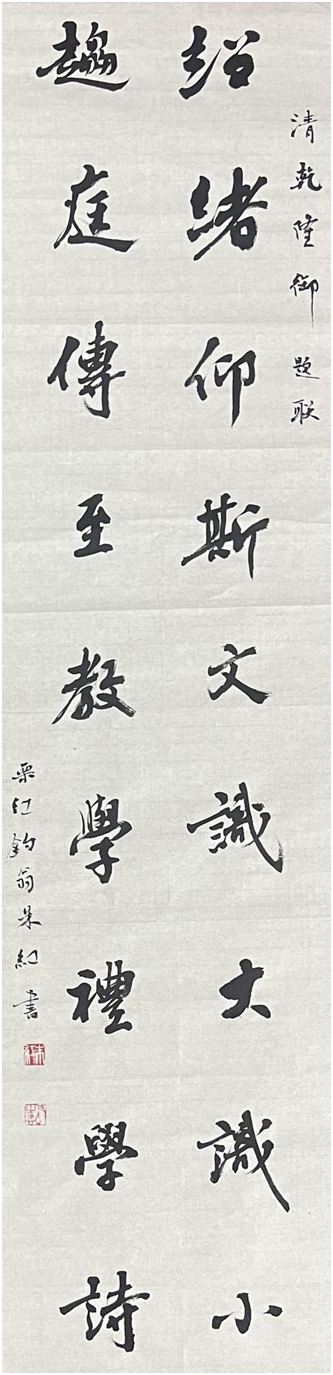 清乾隆御题联
紹緒仰斯文識大識小
趨庭傳至教學禮學詩
栗江钓翁朱紅書